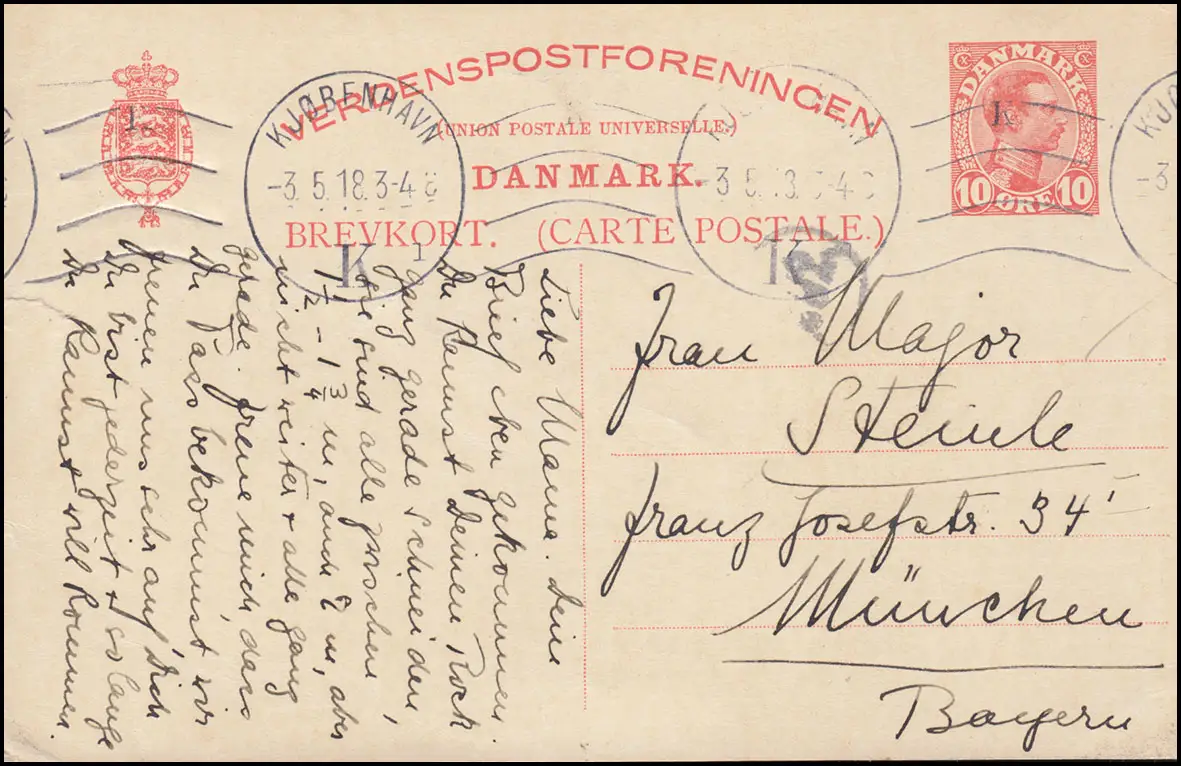 VERDENSPOSTFORENINGEN
(UNION POSTALE UNIVERSELLE.)
DANMARK.
BREVKORT. (CARTE POSTALE.)
DANMARK
10 ØRE 10
KJØBENHAVN
-3.5.18.3-4
K
1
K
Frau Major
Steinle
Franz Josefstr. 34
München
Bayern
Liebe Mama. Dein
Brief eben gekommen
Du kannst Deinen Rock
ganz gerade schneiden,
sie sind alle zwischen
1 1/2 - 1 3/4 m, auch 2 m, aber
nicht weiter + alle ganz
gerade. Freue mich, dass
Du Pass bekommst wir
freuen uns sehr auf Dich
Du bist jederzeit & so lange
Du kannst & will kommen.